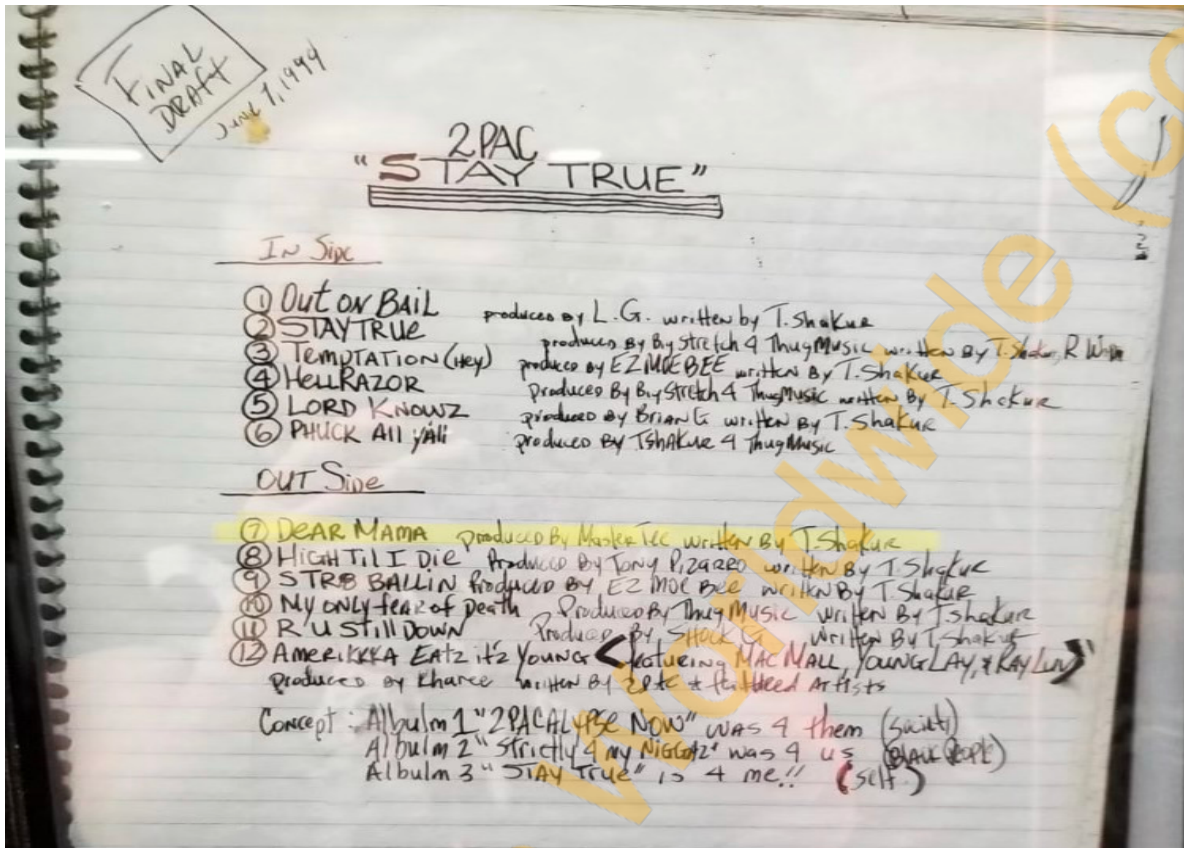 FINAL
DRAFT
JUNE 7, 1994
2PAC
"STAY TRUE"
IN SIDE
① OUT ON BAIL produced By L.G. written by T. Shakur
② STAY TRUE produced By Big Stretch 4 Thug Music written By T. Shakur, R
③ TEMPTATION (Hey) produced by EZ MOE BEE written By T. Shakur
④ HELLRAZOR Produced By Big Stretch 4 Thug Music written By T. Shakur
⑤ LORD KNOWZ produced By BRIAN G written By T. Shakur
⑥ PHUCK All y'all produced By TSHAKUR 4 Thug Music
OUT SIDE
⑦ DEAR MAMA produced By Master Tee written By T. Shakur
⑧ HIGH TIL I DIE Produced By Tony Pizarro written By T. Shakur
⑨ STR8 BALLIN Produced By EZ MOE Bee written By T. Shakur
⑩ My only fear of Death Produced By Thug Music written By T. Shakur
⑪ R U Still DOWN Produced By SHOCK G written By T. Shakur
⑫ AMERIKKKA EATZ it'z YOUNG < featuring MAC MALL, YOUNG LAY, & RAY LUV)"
produced By Kharee written By 2pac & Artists
Concept : Albulm 1 "2PACALYPSE NOW" was 4 them
Albulm 2 "Strictly 4 my NIGGAZ" was 4 us (BLACK PEOPLE)
Albulm 3 "STAY True" is 4 me!! (self)
worldwide (co